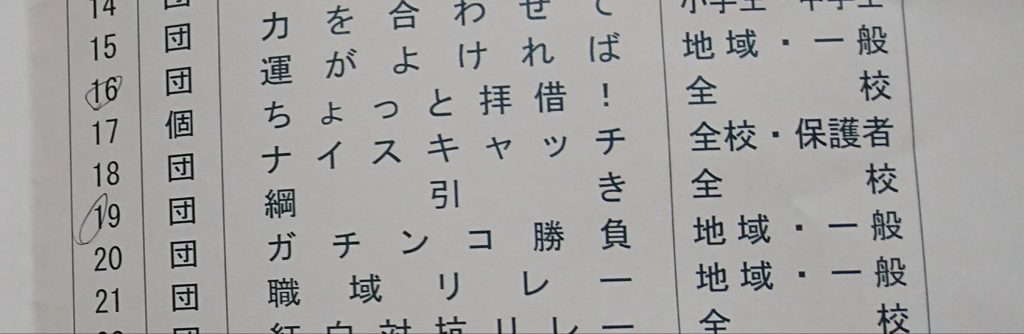 14 団
15 団 力を合わせて 小学生・中学生
16 団 運がよければ 地域・一般
17 個 ちょっと拝借! 全校
18 団 ナイスキャッチ 全校・保護者
19 団 綱引き 全校
20 団 ガチンコ勝負 地域・一般
21 団 職域リレー 地域・一般
団 紅白対抗リレー 全校